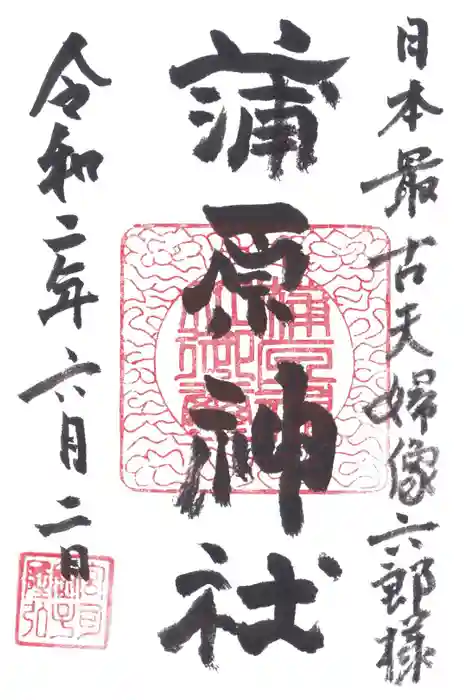 日本最古夫婦像六郎様
蒲原神社
令和二年六月二日